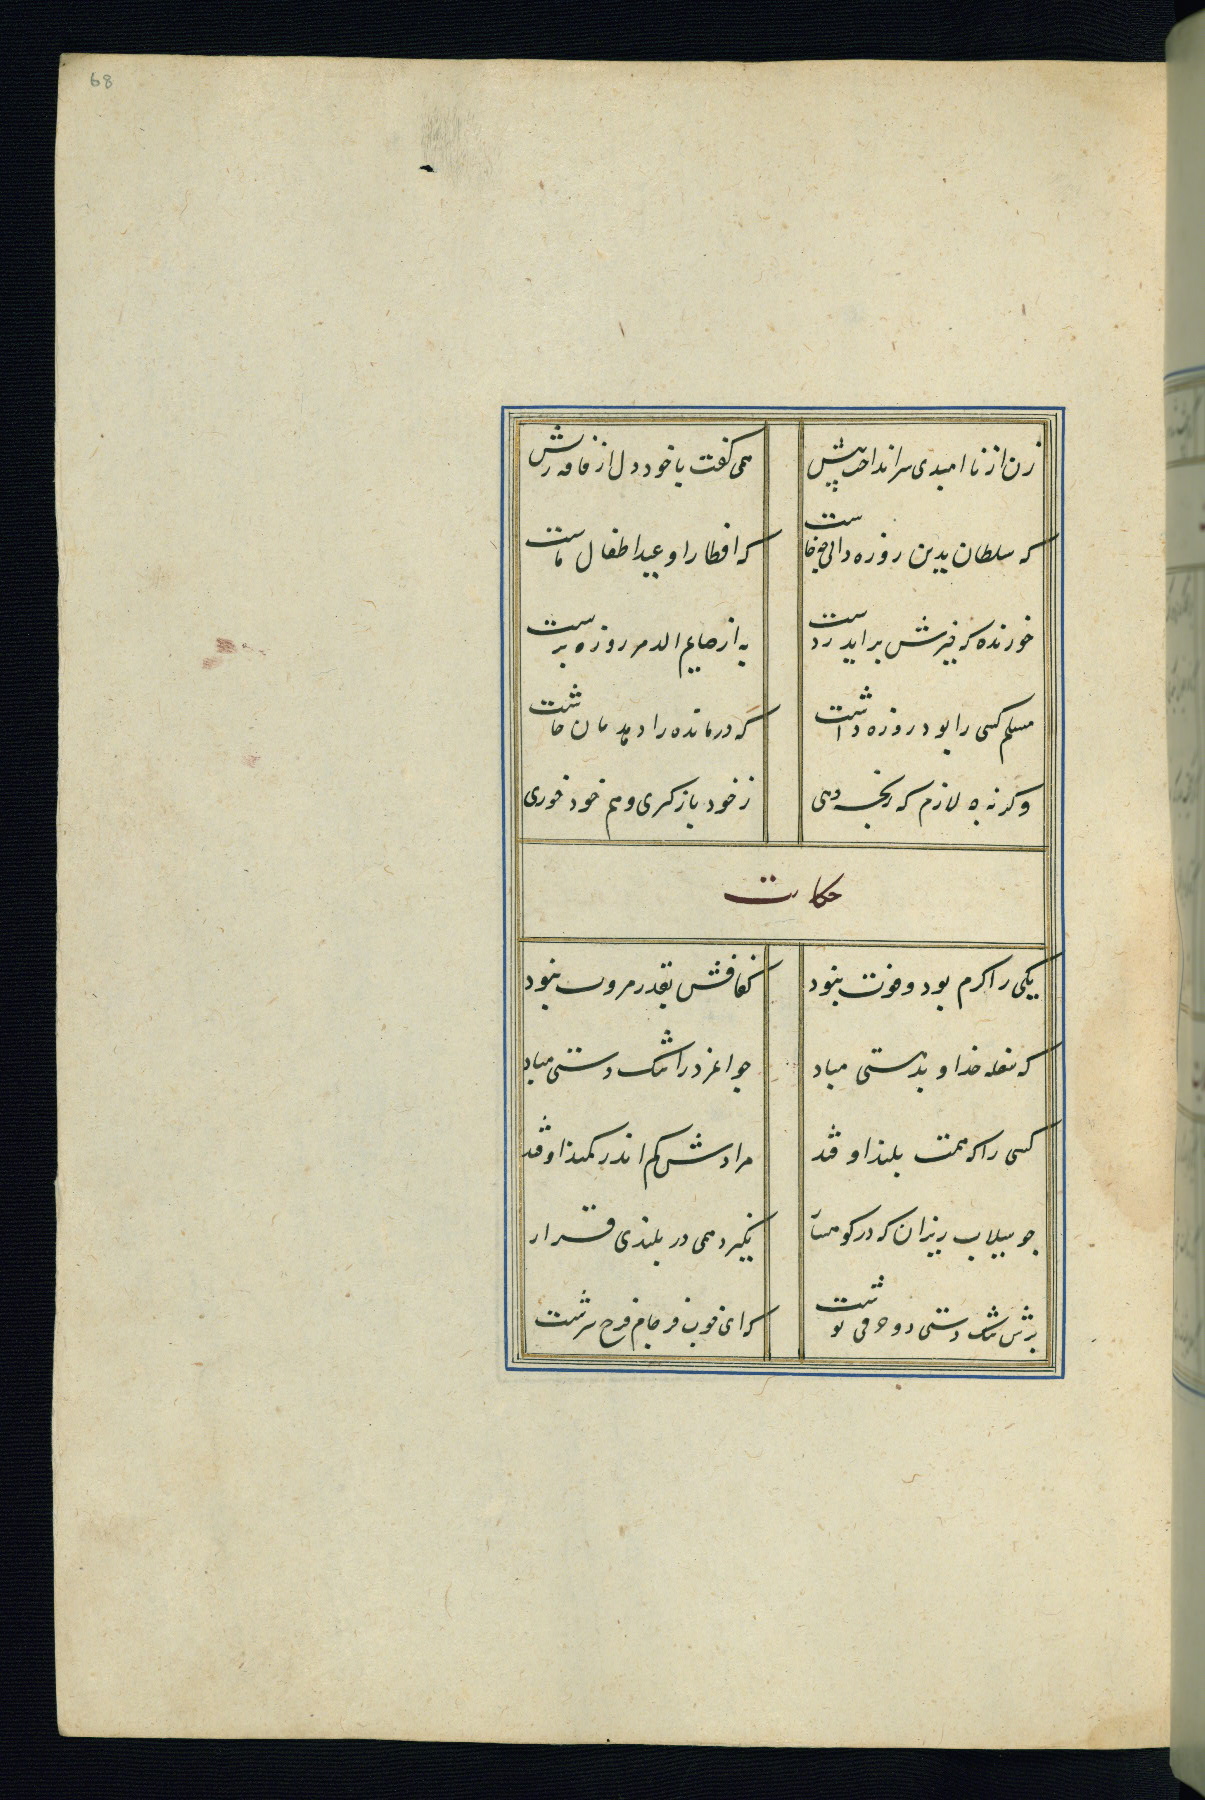 68
زن از نا امیدی سر انداخت پیش
همی گفت با خود دل از فاقه ریش
که سلطان بدین روزه داری چه خواست
که افطار او عید اطفال ماست
خورنده که خیرش براید ز دست
به از صایم الدهر روزه پرست
مسلم کسی را بود روزه داشت
که درمانده را دهد نان چاشت
وگرنه چه لازم که رنجه دهی
ز خود بازگیری و هم خود خوری
حکایت
یکی را کرم بود و قوت نبود
کفافش بقدر مروت نبود
که سفله خداوند هستی مباد
جوانمرد را تنگ دستی مباد
کسی را که همت بلند اوفتد
مرادش کم اندر کمند اوفتد
چو سیلاب ریزان که در کوهسار
نگیرد همی در بلندی قرار
برش تنگ دستی دو حرفی نوشت
که ای خوب فرجام فرخ سرشت